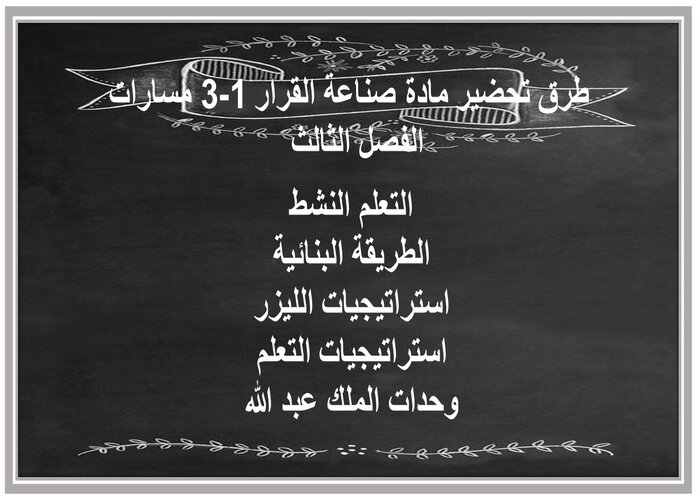 طرق تحضير مادة صناعة القرار 1-3 مسارات
الفصل الثالث
التعلم النشط
الطريقة البنائية
استراتيجيات الليزر
استراتيجيات التعلم
وحدات الملك عبد الله